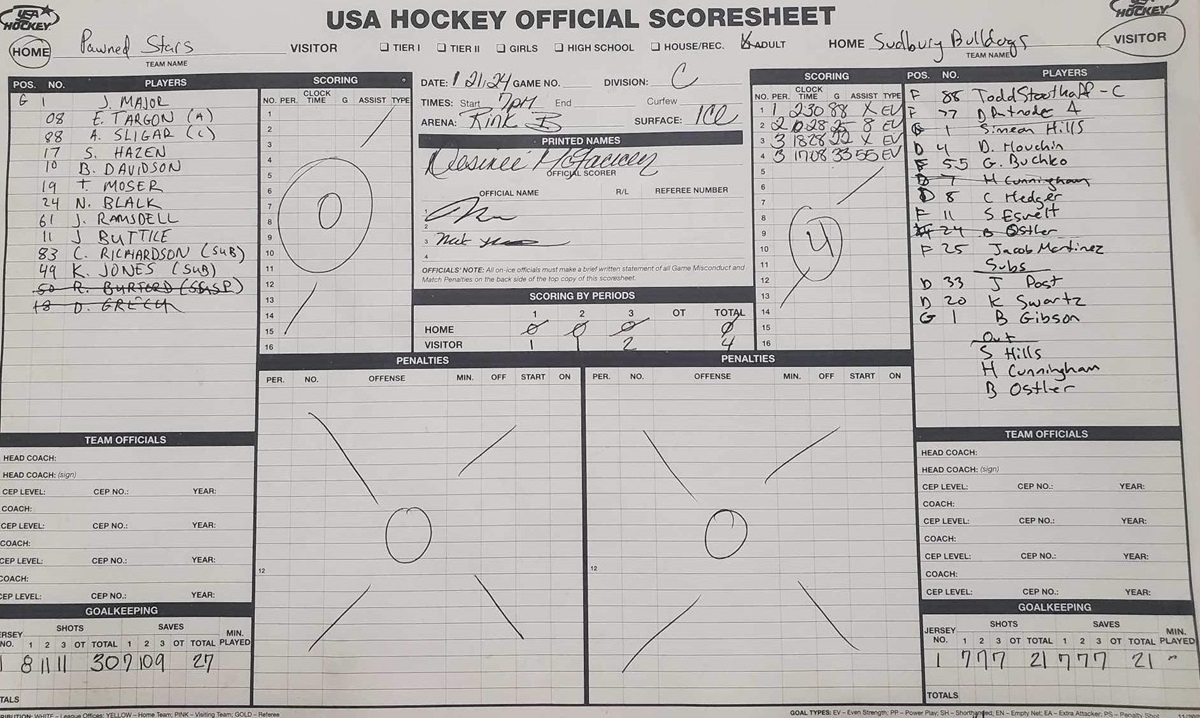 USA HOCKEY OFFICIAL SCORESHEET
USA HOCKEY
HOCKEY
HOME Pawned Stars VISITOR ☐ TIER I ☐ TIER II ☐ GIRLS ☐ HIGH SCHOOL ☐ HOUSE/REC. ☒ ADULT HOME Sudbury Bulldogs VISITOR
TEAM NAME
TEAM NAME
POS. NO. PLAYERS
G 1 J. MAJOR
08 E. TARGON (A)
88 A. SLIGAR (C)
17 S. HAZEN
10 B. DAVIDSON
19 T. MOSER
24 N. BLACK
61 J. RAMSDELL
11 J BUTTILE
83 C. RICHARDSON (SUB)
49 K. JONES (SUB)
50 R. BURFORD
13 D.
SCORING
NO. PER. CLOCK TIME G ASSIST TYPE
1
2
3
4
5
6
7
8
9
10
11
12
13
14
15
16
0
DATE: 1 21.24 GAME NO. DIVISION: C
TIMES: Start 7pm End Curfew
ARENA: Rink B SURFACE: ICE
PRINTED NAMES
OFFICIAL SCORER
OFFICIAL NAME R/L REFEREE NUMBER
1
2
3
4
OFFICIALS' NOTE: All on-ice officials must make a brief written statement of all Game Misconduct and
Match Penalties on the back side of the top copy of this scoresheet.
SCORING BY PERIODS
1 2 3 OT TOTAL
HOME 0 0 0 0
VISITOR 1 1 2 4
SCORING
NO. PER. CLOCK TIME G ASSIST TYPE
1 1 230 88 X EV
2 2 8 EV
3 3 1828 22 X EV
4 3 1708 33 55 EV
5
6
7
8
9
10
11
12
13
14
15
16
4
POS. NO. PLAYERS
F 88 Todd - C
F 77
G 1 Simeon Hills
D 4 D. Houchin
F 55 G. Buchko
D 7 H Cunningham
D 8 C Hedger
F 11 S
24 B Ostler
F 25 Jacob Martinez
Subs
D 33 J Post
D 20 K Swartz
G 1 B Gibson
Out
S Hills
H Cunningham
B Ostler
PENALTIES
PER. NO. OFFENSE MIN. OFF START ON
0
12
PENALTIES
PER. NO. OFFENSE MIN. OFF START ON
0
12
TEAM OFFICIALS
HEAD COACH:
HEAD COACH: (sign)
CEP LEVEL: CEP NO.: YEAR:
COACH:
CEP LEVEL: CEP NO.: YEAR:
COACH:
CEP LEVEL: CEP NO.: YEAR:
COACH:
CEP LEVEL: CEP NO.: YEAR:
GOALKEEPING
SHOTS SAVES
JERSEY NO. 1 2 3 OT TOTAL 1 2 3 OT TOTAL MIN. PLAYED
1 8 11 11 30 7 10 9 27
TOTALS
TEAM OFFICIALS
HEAD COACH:
HEAD COACH: (sign)
CEP LEVEL: CEP NO.: YEAR:
COACH:
CEP LEVEL: CEP NO.: YEAR:
COACH:
CEP LEVEL: CEP NO.: YEAR:
COACH:
CEP LEVEL: CEP NO.: YEAR:
GOALKEEPING
SHOTS SAVES
JERSEY NO. 1 2 3 OT TOTAL 1 2 3 OT TOTAL MIN. PLAYED
1 7 7 7 21 7 7 7 21
TOTALS
WHITE – League Offices; YELLOW – Home Team; PINK – Visiting Team; GOLD – Referee
GOAL TYPES: EV – Even Strength; PP – Power Play; SH – Shorthanded; EN – Empty Net; EA – Extra Attacker; PS – Penalty Shot